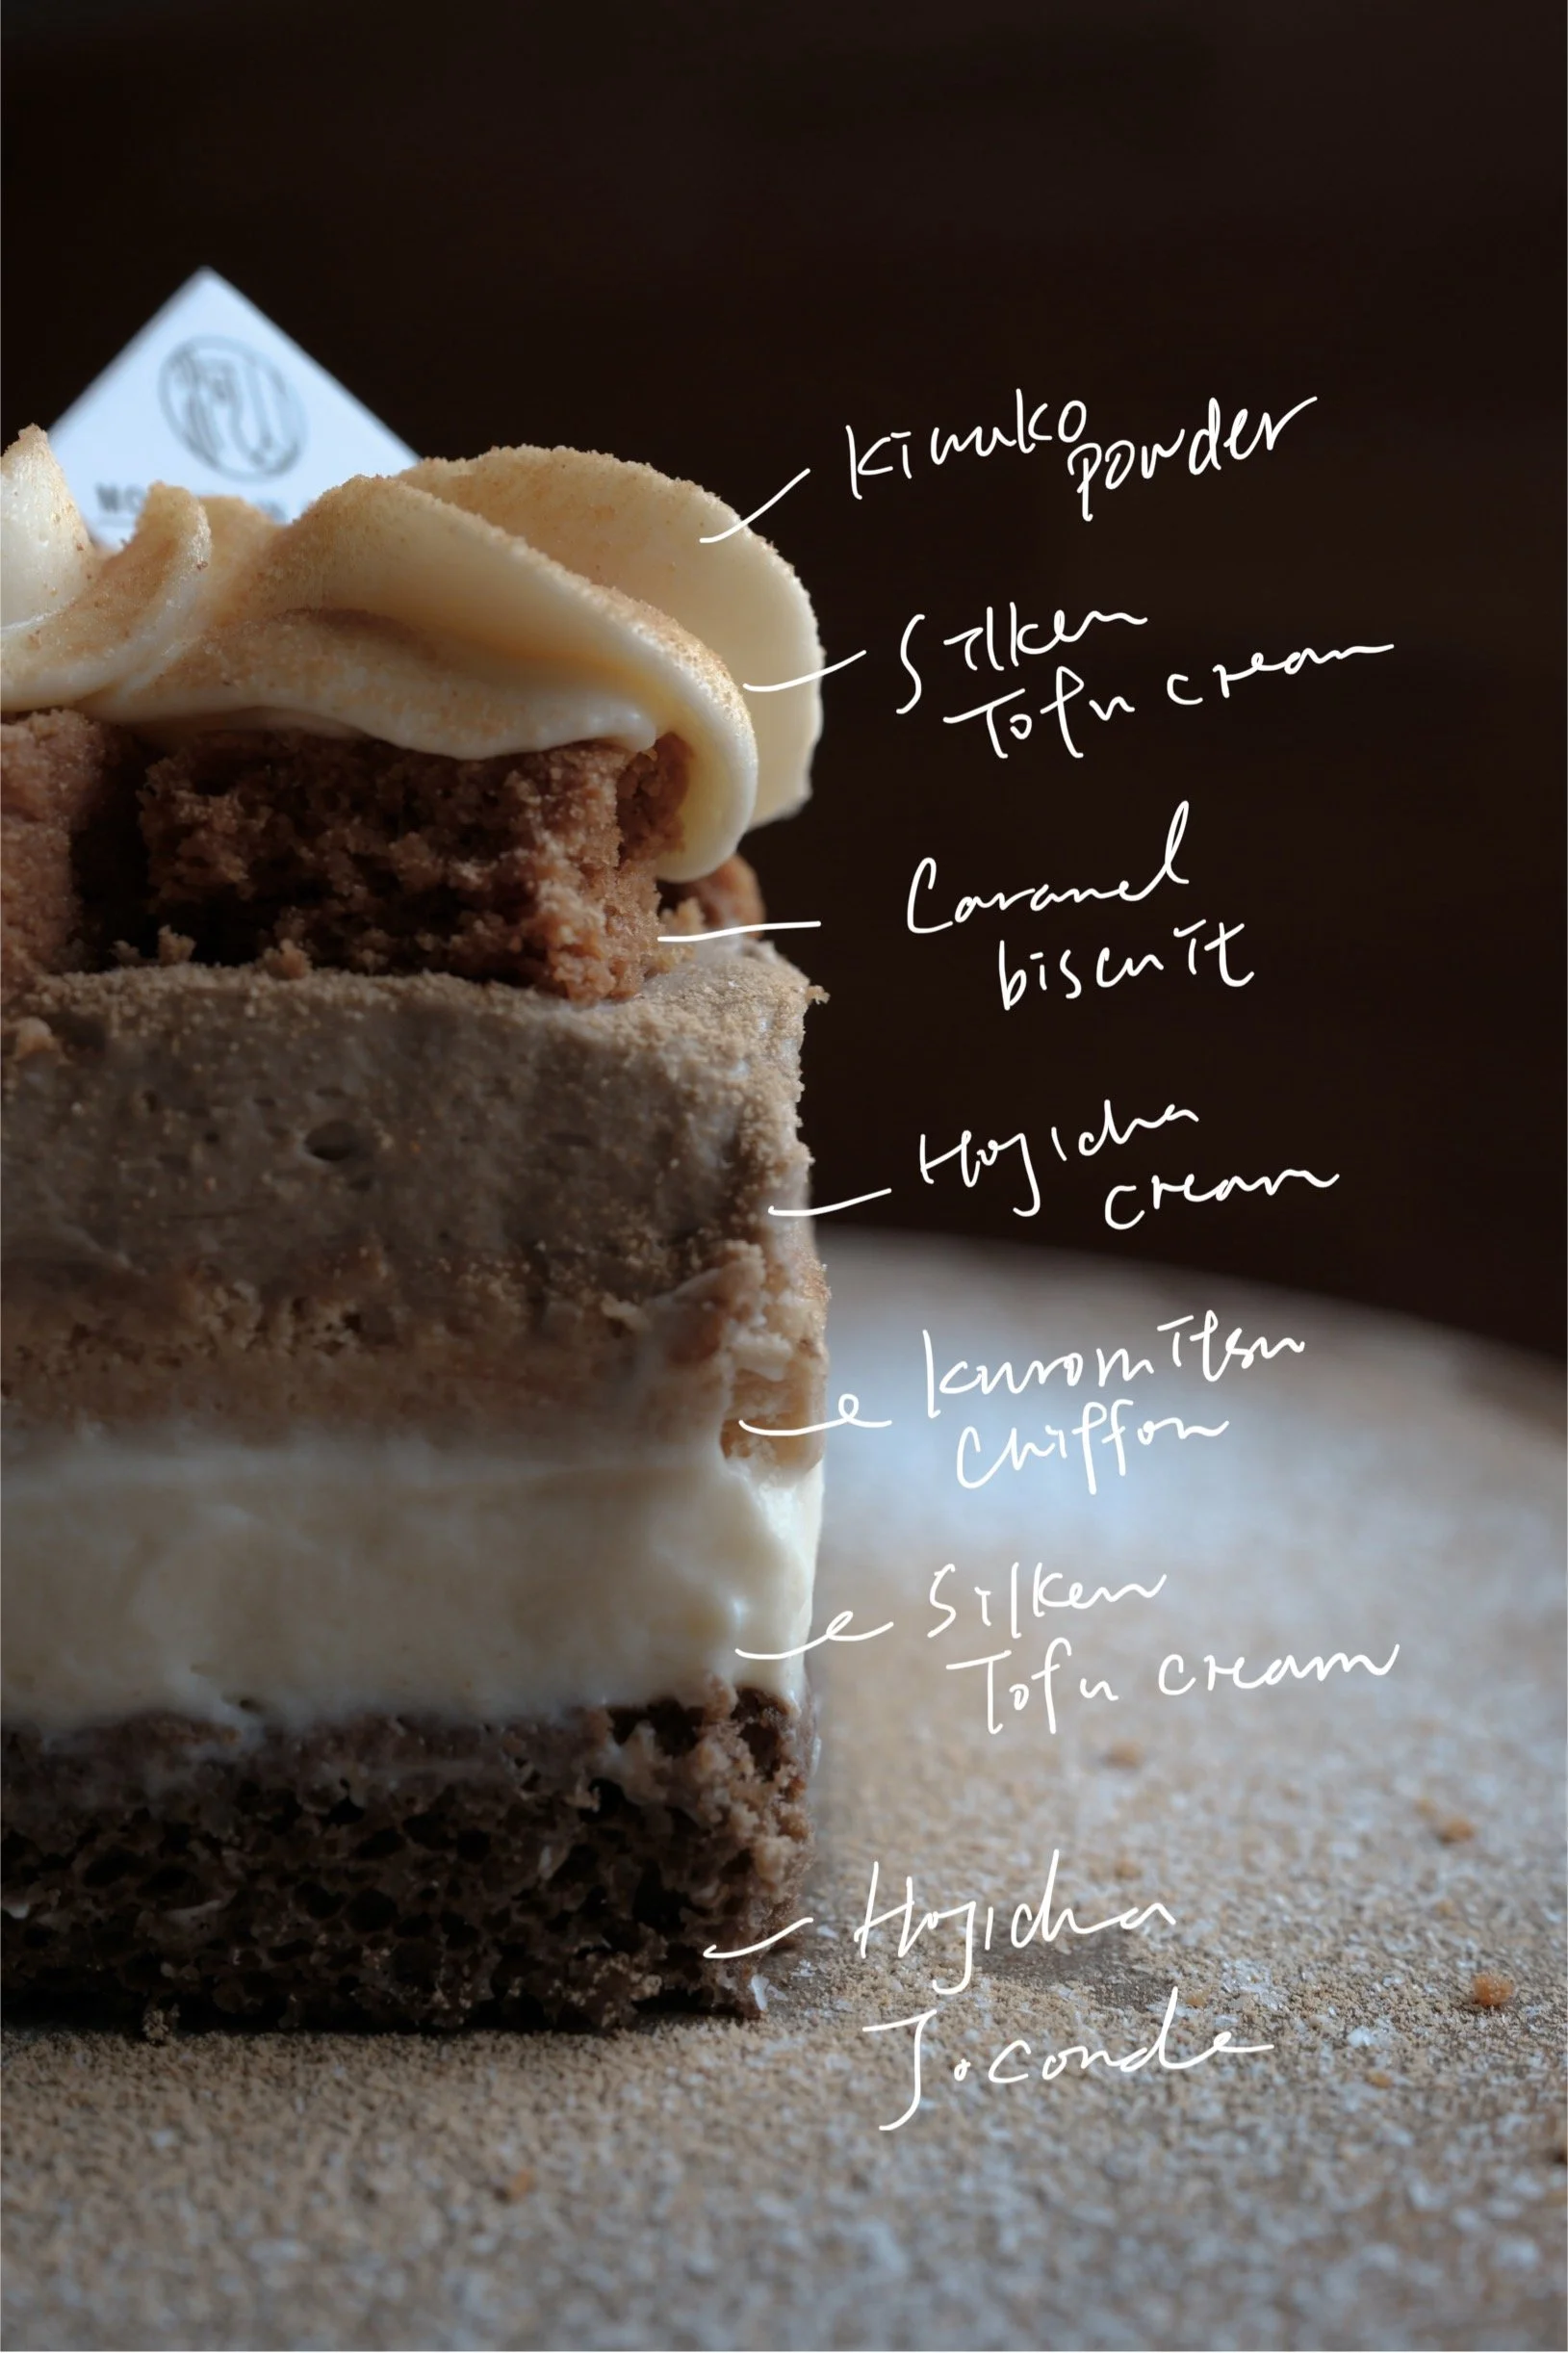 Kinako
powder
Silken
Tofu cream
Caramel
biscuit
Hojicha
cream
Kuromitsu
Chiffon
Silken
Tofu cream
Hojicha
Joconde